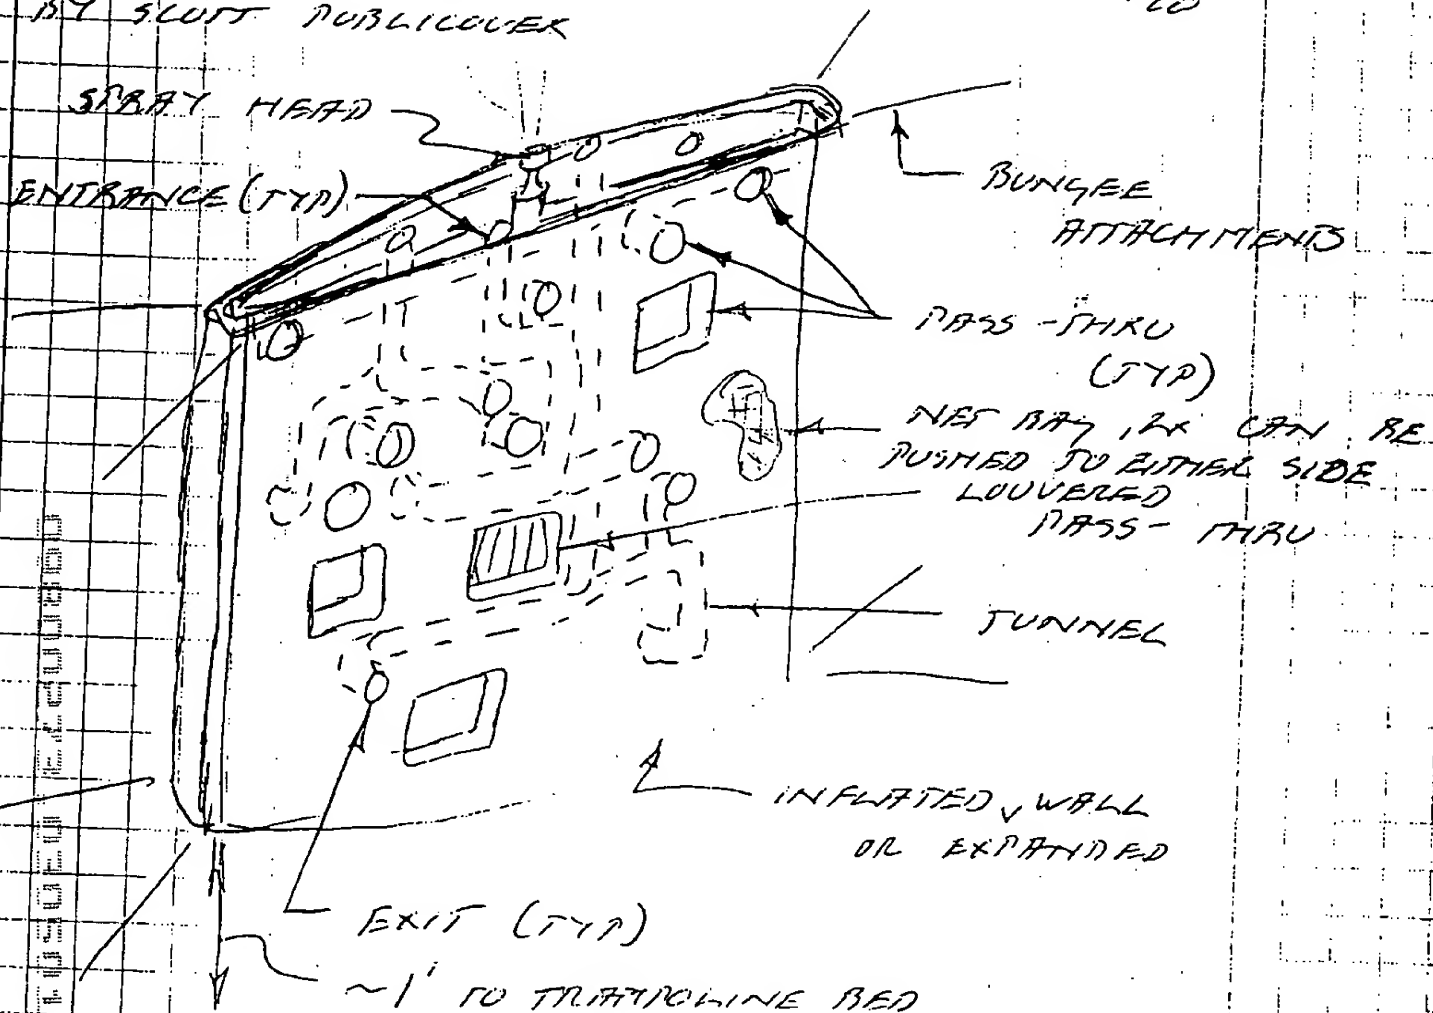 BY SCOTT PUBLICOVER
SPRAY HEAD
ENTRANCE (TYP)
BUNGEE
ATTACHMENTS
PASS-THRU
(TYP)
NET BAG, 2X CAN BE
PUSHED TO EITHER SIDE
LOUVERED
PASS-THRU
TUNNEL
INFLATED, WALL
OR EXPANDED
EXIT (TYP)
~1' TO TRAMPOLINE BED